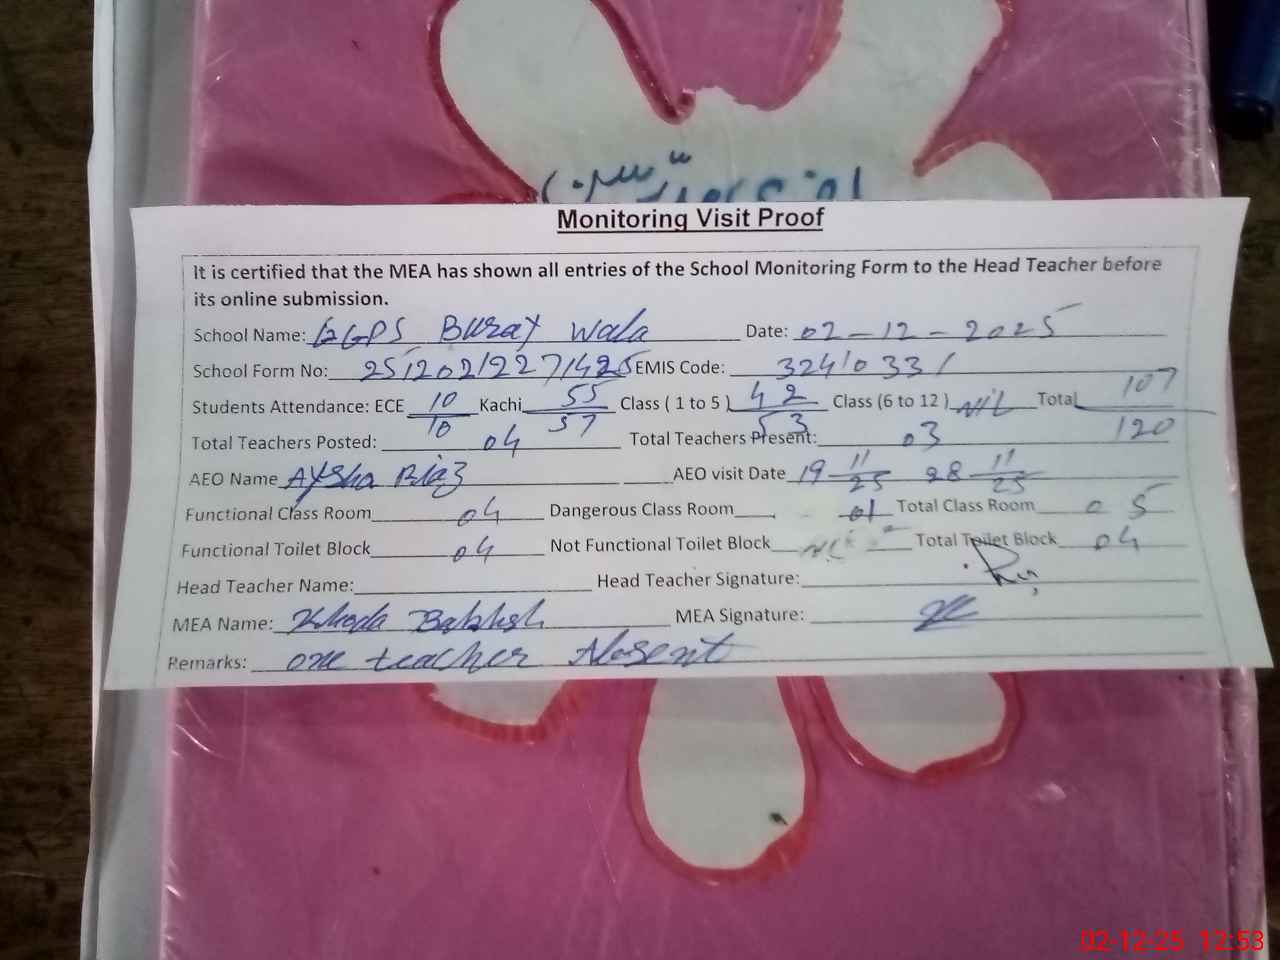 Monitoring Visit Proof
It is certified that the MEA has shown all entries of the School Monitoring Form to the Head Teacher before
its online submission.
School Name: GGPS Buray Wala Date: 02-12-2025
School Form No: 251202/227/425 EMIS Code: 32410331
Students Attendance: ECE 10/10 Kachi 55/57 Class ( 1 to 5 ) 42/53 Class (6 to 12 ) NIL Total 107/120
Total Teachers Posted: 04 Total Teachers Present: 03
AEO Name Aysha Riaz AEO visit Date 19 11/25 28 11/25
Functional Class Room 04 Dangerous Class Room 01 Total Class Room 05
Functional Toilet Block 04 Not Functional Toilet Block Total Toilet Block 04
Head Teacher Name: Head Teacher Signature:
MEA Name: Khoda Bakhsh MEA Signature:
Remarks: one teacher Absent
02-12-25 12:53